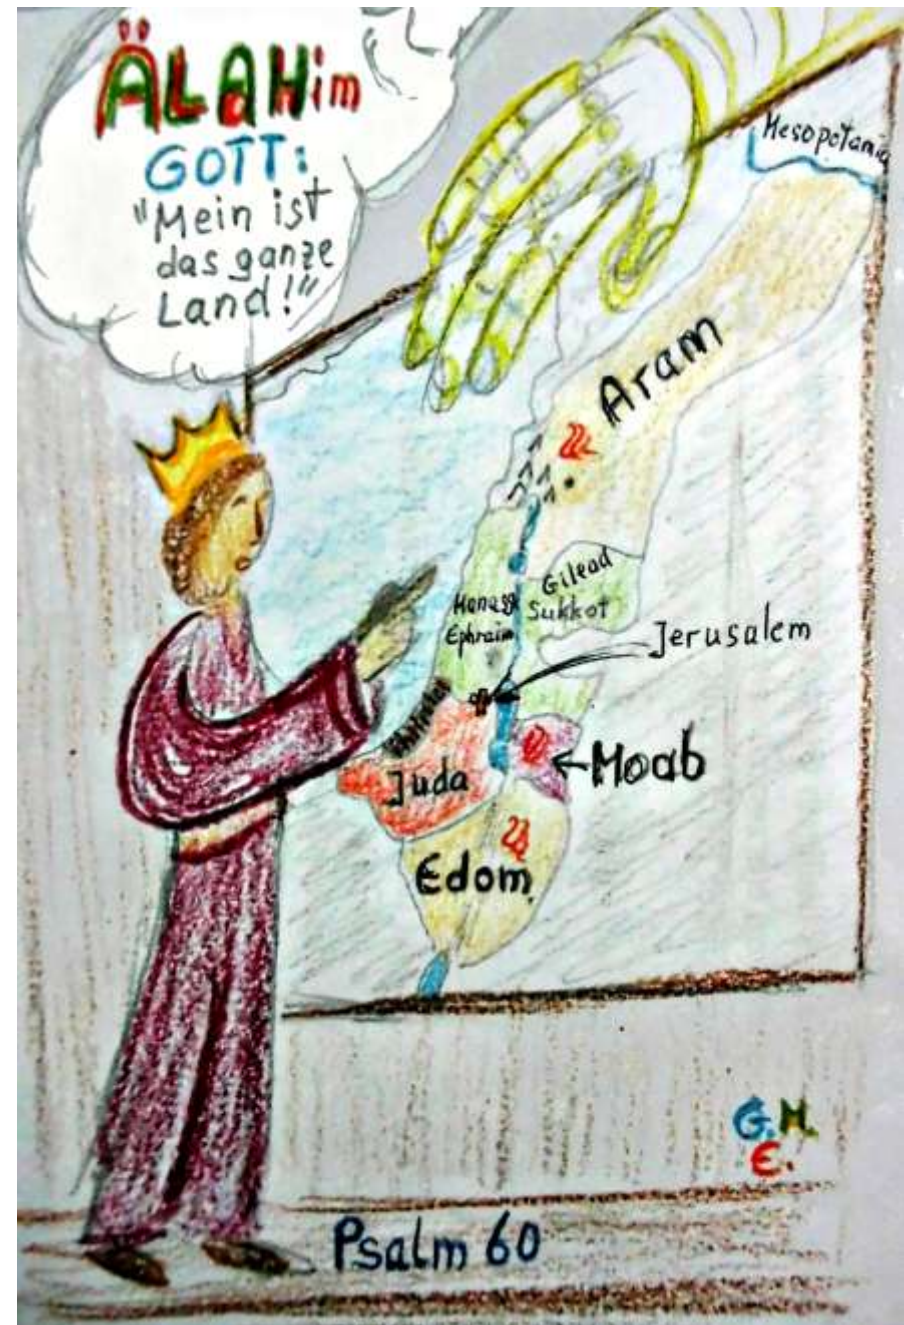 ÄLAHim
GOTT:
"Mein ist
das ganze
Land!"
Mesopotamia
Aram
Gilead
Sukkot
Manass
Ephraim
Jerusalem
Juda
Moab
Edom
G.M.
E.
Psalm 60